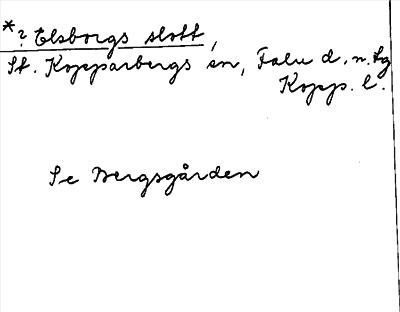 *? Elsborgs slott,
St. Kopparbergs sn, Falu d. n. tg
Kopp. l.
Se Bergsgården